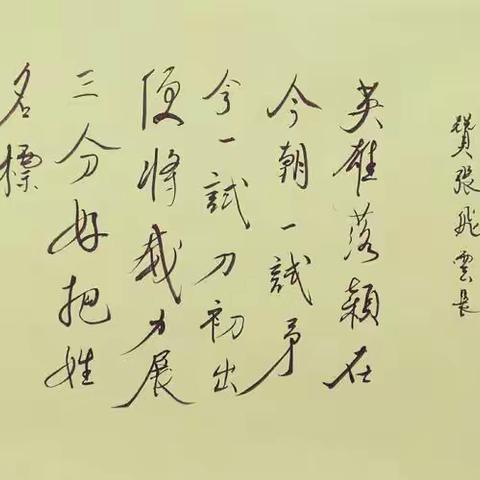 贊張飛雲長
英雄落穎在
今朝一試矛
兮一試刀初出
便將威力展
三分好把姓
名標